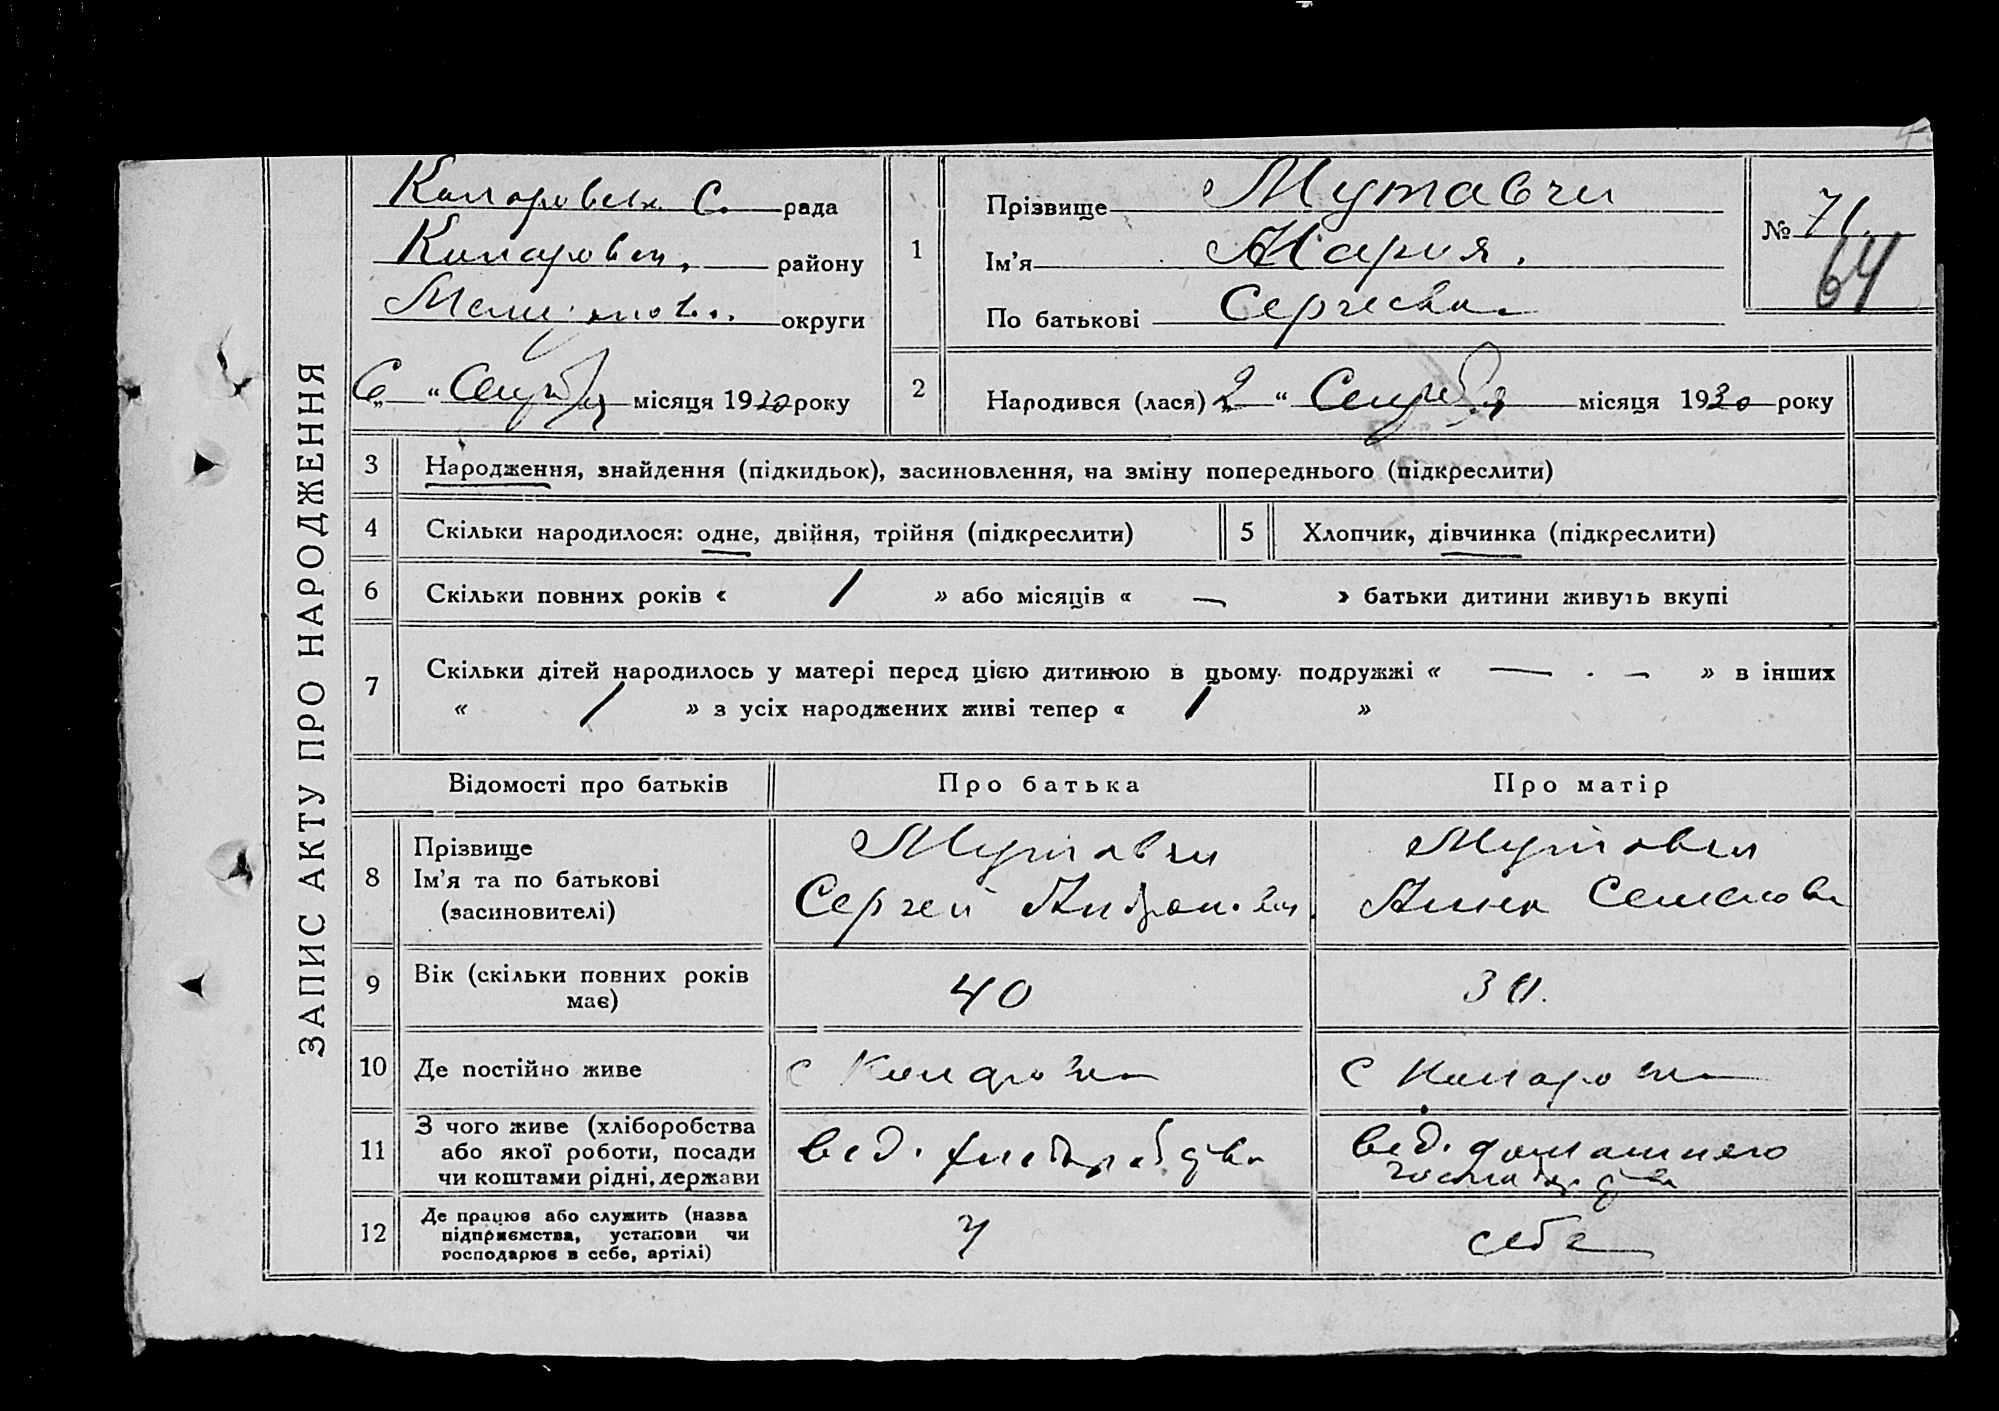 ЗАПИС АКТУ ПРО НАРОДЖЕННЯ
С. рада
району
округи
6 " Сентября місяця 1930 року
1
Прізвище Мутавчи
Ім'я Мария.
По батькові Сергеевна
№ 71.
64
2
Народився (лася) 2 " Сентября місяця 1930 року
3 Народження, знайдення (підкидьок), засиновлення, на зміну попереднього (підкреслити)
4 Скільки народилося: одне, двійня, трійня (підкреслити)
5 Хлопчик, дівчинка (підкреслити)
6 Скільки повних років « 1 » або місяців « — » батьки дитини живуть вкупі
7 Скільки дітей народилось у матері перед цією дитиною в цьому подружжі « — . — » в інших
« 1 » з усіх народжених живі тепер « 1 »
Відомості про батьків Про батька Про матір
8 Прізвище
Ім'я та по батькові
(засиновителі)
Мутавчи
Сергей
Мутавчи
Анна Семенова
9 Вік (скільки повних років
має)
40
30.
10 Де постійно живе
с
с
11 З чого живе (хліборобства
або якої роботи, посади
чи коштами рідні, держави
вед.
вед. домашнего
12 Де працює або служить (назва
підприємства, установи чи
господарює в себе, артілі)
У
себе